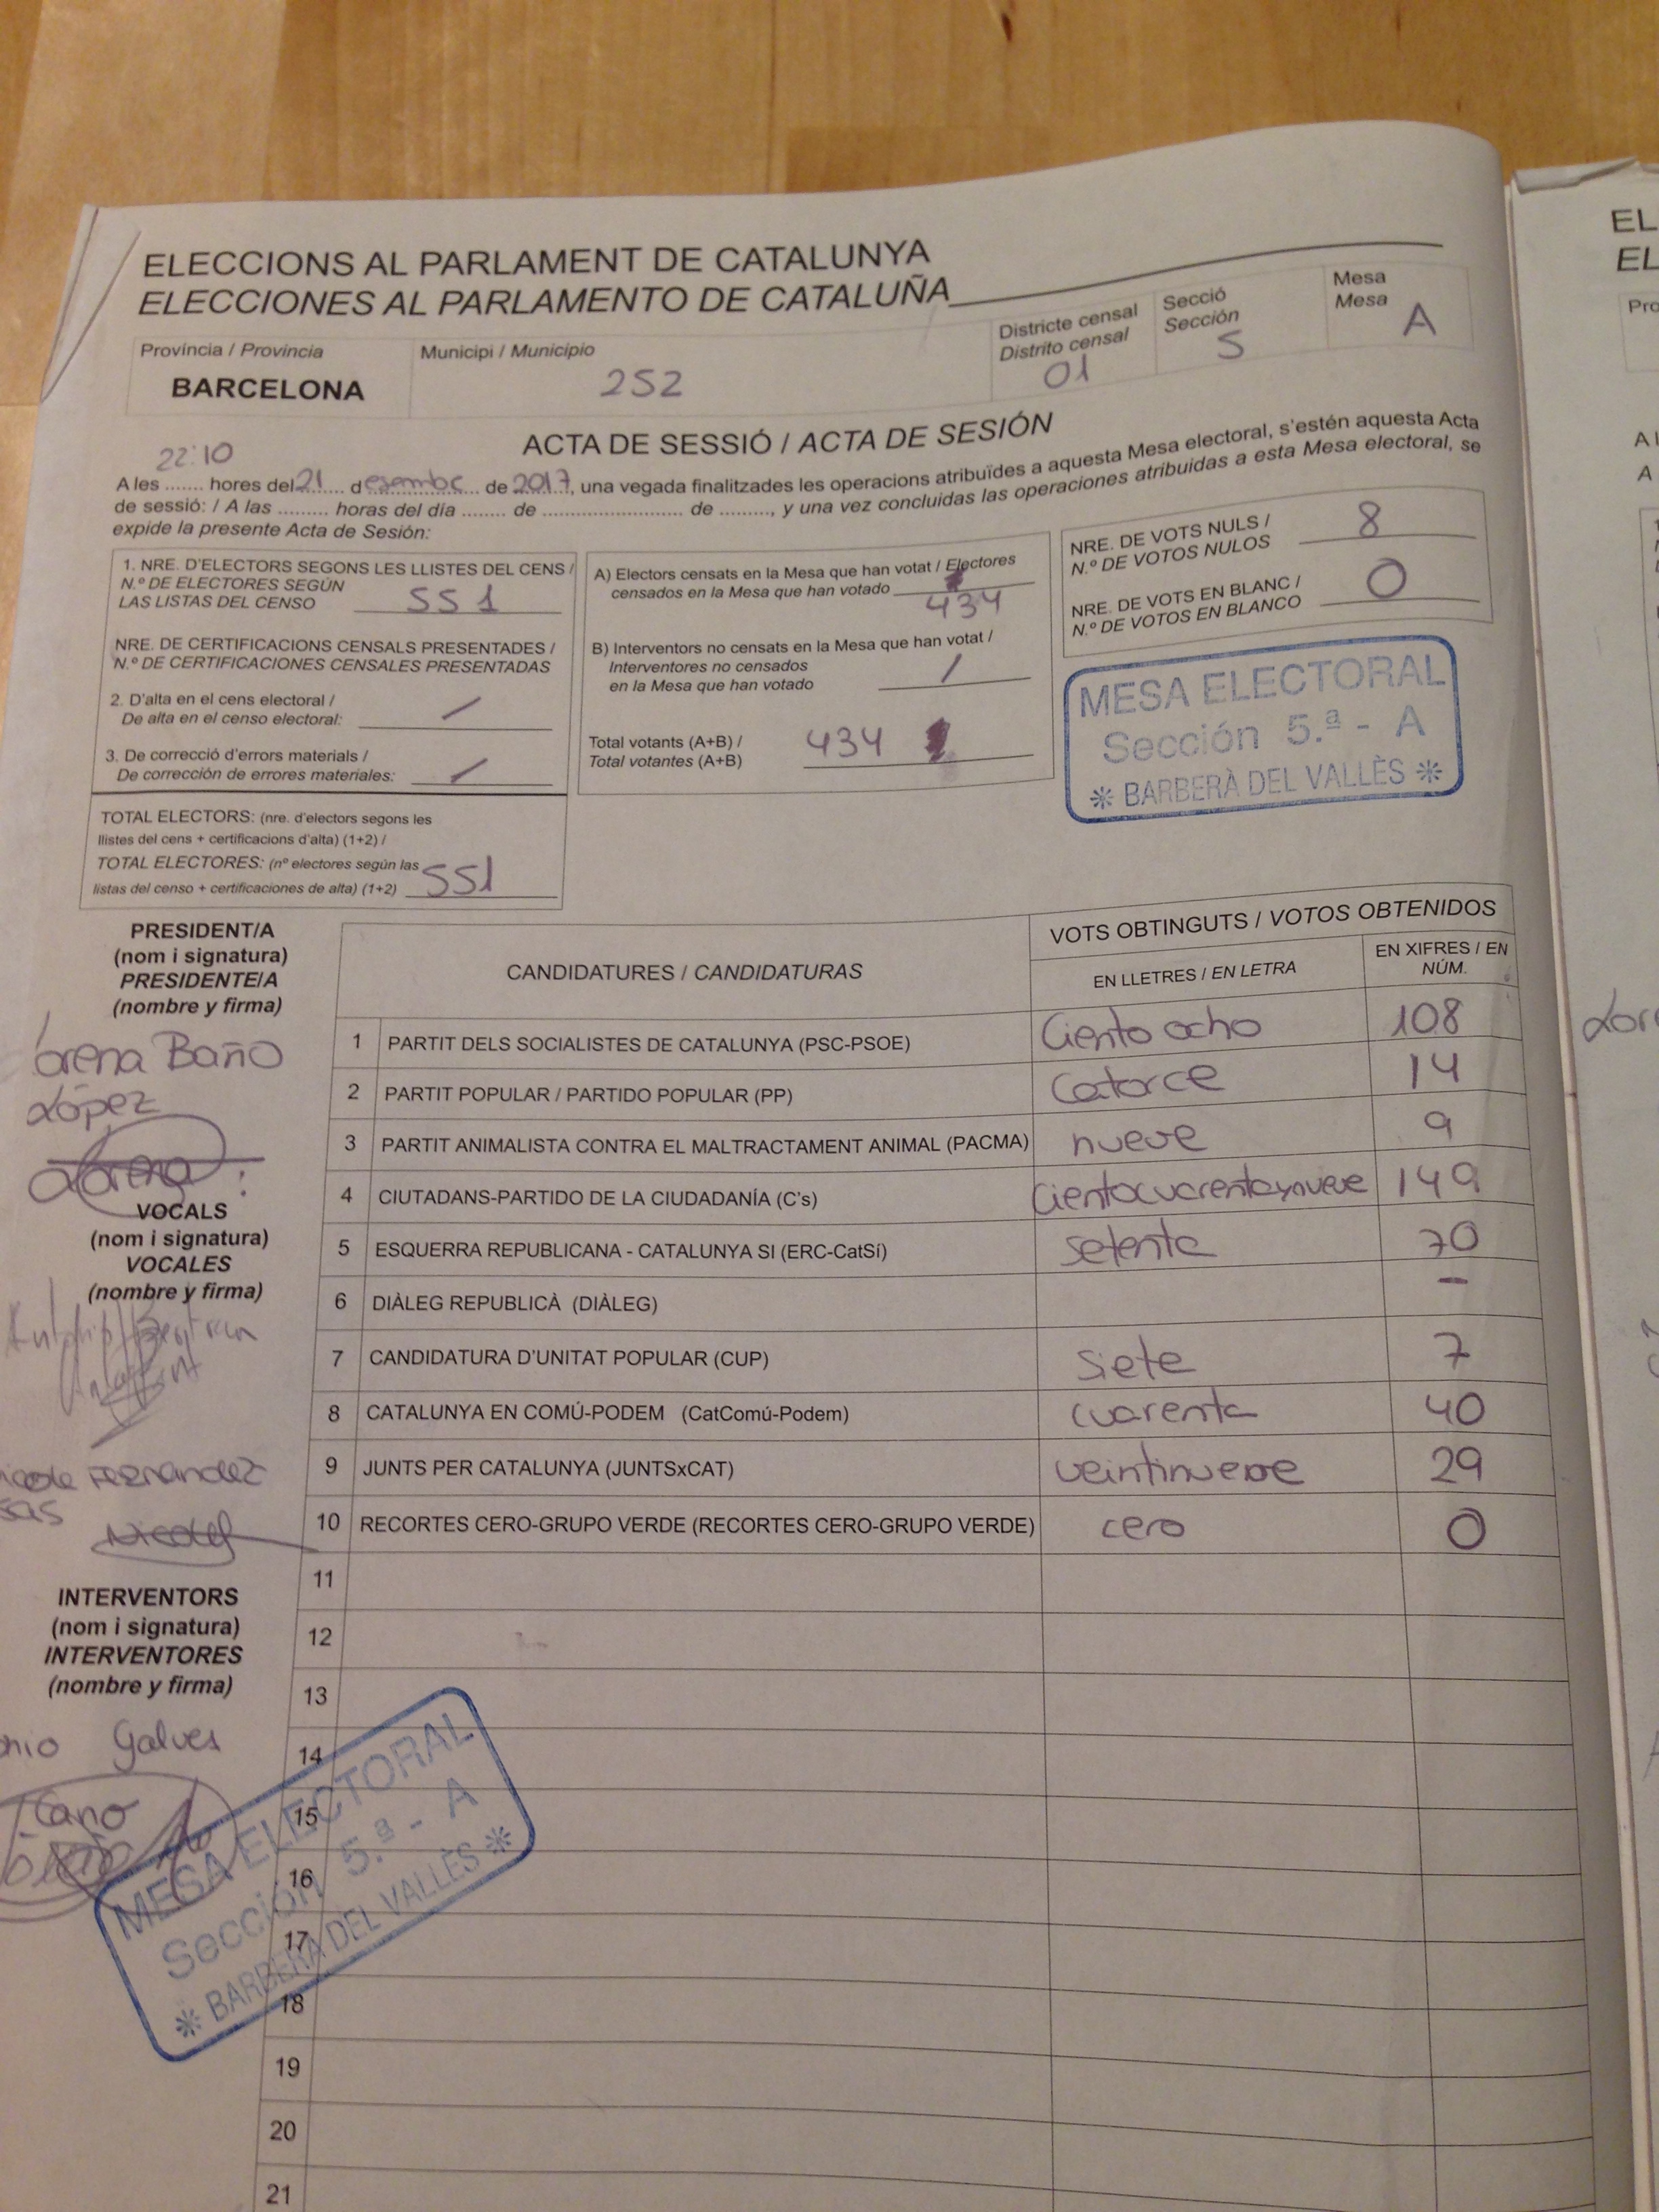 ELECCIONS AL PARLAMENT DE CATALUNYA
ELECCIONES AL PARLAMENTO DE CATALUÑA
Província / Provincia
BARCELONA
Municipi / Municipio
252
Districte censal
Distrito censal
01
Secció
Sección
5
Mesa
Mesa
A
ACTA DE SESSIÓ / ACTA DE SESIÓN
22:10
A les ........ hores del 21 desembre de 2017, una vegada finalitzades les operacions atribuïdes a aquesta Mesa electoral, s'estén aquesta Acta
de sessió: / A las ......... horas del día ........ de ........................ de ........., y una vez concluidas las operaciones atribuidas a esta Mesa electoral, se
expide la presente Acta de Sesión:
1. NRE. D'ELECTORS SEGONS LES LLISTES DEL CENS /
N.º DE ELECTORES SEGÚN
LAS LISTAS DEL CENSO 551
NRE. DE CERTIFICACIONS CENSALS PRESENTADES /
N.º DE CERTIFICACIONES CENSALES PRESENTADAS
2. D'alta en el cens electoral /
De alta en el censo electoral: /
3. De correcció d'errors materials /
De corrección de errores materiales: /
TOTAL ELECTORS: (nre. d'electors segons les
llistes del cens + certificacions d'alta) (1+2) /
TOTAL ELECTORES: (nº electores según las
listas del censo + certificaciones de alta) (1+2) 551
A) Electors censats en la Mesa que han votat / Electores
censados en la Mesa que han votado
434
B) Interventors no censats en la Mesa que han votat /
Interventores no censados
en la Mesa que han votado /
Total votants (A+B) /
Total votantes (A+B) 434
NRE. DE VOTS NULS /
N.º DE VOTOS NULOS 8
NRE. DE VOTS EN BLANC /
N.º DE VOTOS EN BLANCO 0
MESA ELECTORAL
Sección 5.ª - A
* BARBERÀ DEL VALLÈS *
PRESIDENT/A
(nom i signatura)
PRESIDENTE/A
(nombre y firma)
Lorena Baño
López
Lorena
VOCALS
(nom i signatura)
VOCALES
(nombre y firma)
Fernandez
INTERVENTORS
(nom i signatura)
INTERVENTORES
(nombre y firma)
Galves
Cano
CANDIDATURES / CANDIDATURAS
VOTS OBTINGUTS / VOTOS OBTENIDOS
EN LLETRES / EN LETRA
EN XIFRES / EN
NÚM.
1 PARTIT DELS SOCIALISTES DE CATALUNYA (PSC-PSOE) Ciento ocho 108
2 PARTIT POPULAR / PARTIDO POPULAR (PP) Catorce 14
3 PARTIT ANIMALISTA CONTRA EL MALTRACTAMENT ANIMAL (PACMA) nueve 9
4 CIUTADANS-PARTIDO DE LA CIUDADANÍA (C's) Cientocuarentaynueve 149
5 ESQUERRA REPUBLICANA - CATALUNYA SI (ERC-CatSí) setenta 70
6 DIÀLEG REPUBLICÀ (DIÀLEG) -
7 CANDIDATURA D'UNITAT POPULAR (CUP) Siete 7
8 CATALUNYA EN COMÚ-PODEM (CatComú-Podem) cuarenta 40
9 JUNTS PER CATALUNYA (JUNTSxCAT) veintinueve 29
10 RECORTES CERO-GRUPO VERDE (RECORTES CERO-GRUPO VERDE) cero 0
11
12
13
14
15
16
17
18
19
20
21
MESA ELECTORAL
Sección 5.ª - A
* BARBERÀ DEL VALLÈS *